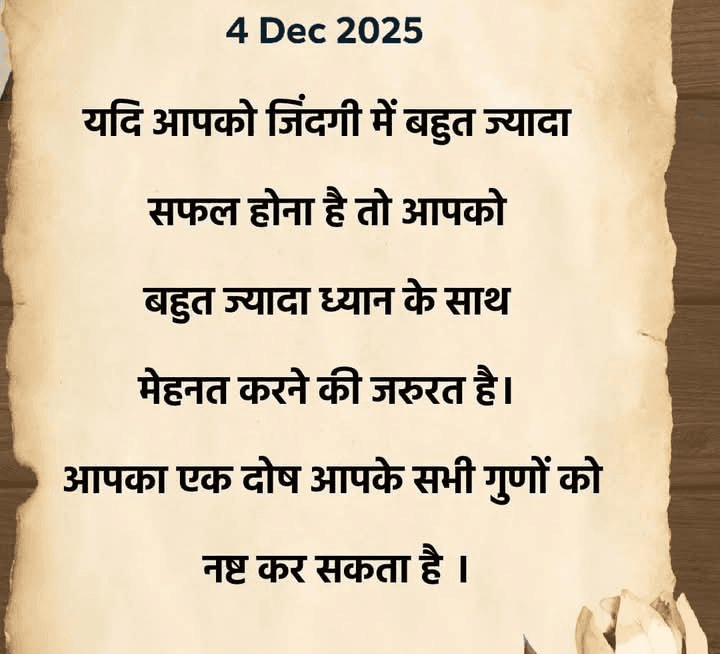 4 Dec 2025
यदि आपको जिंदगी में बहुत ज्यादा
सफल होना है तो आपको
बहुत ज्यादा ध्यान के साथ
मेहनत करने की जरुरत है।
आपका एक दोष आपके सभी गुणों को
नष्ट कर सकता है ।